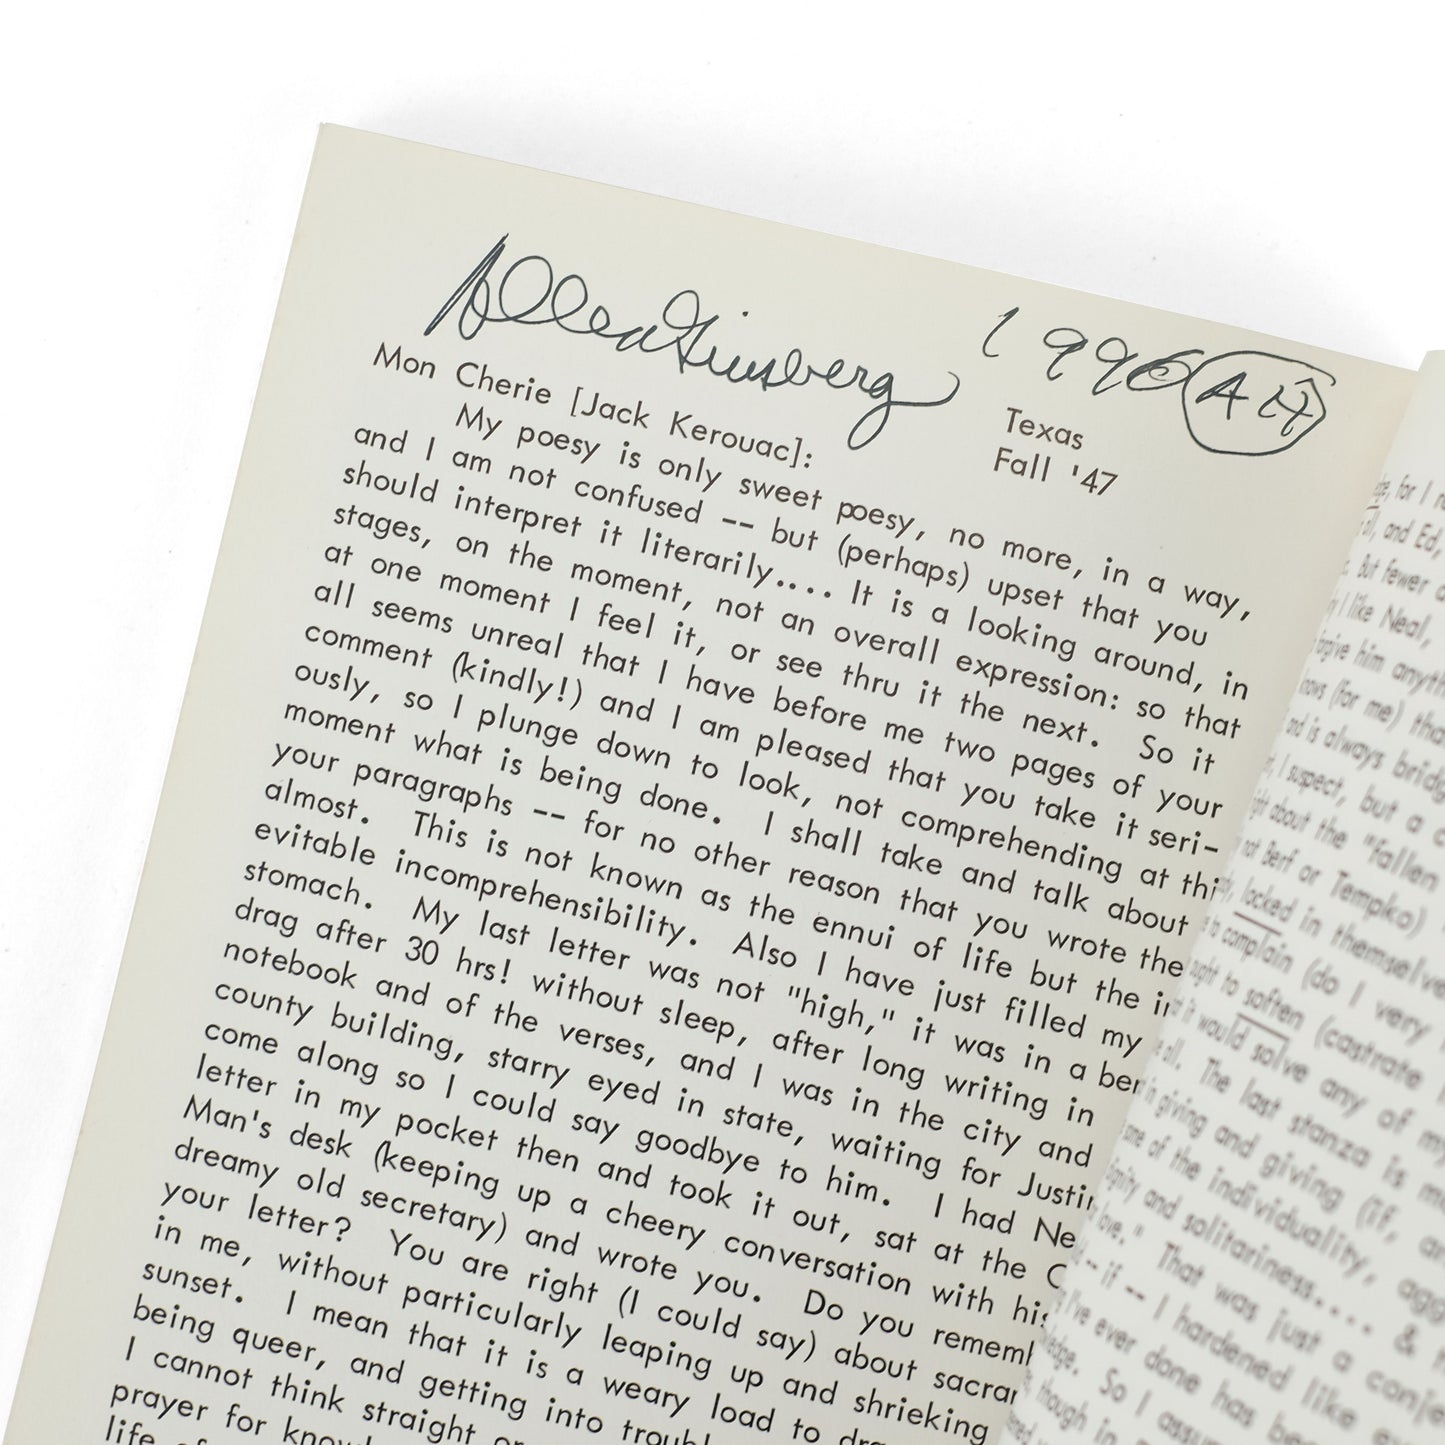 Allen Ginsberg 1996 AH
Texas
Fall '47
Mon Cherie [Jack Kerouac]:
My poesy is only sweet poesy, no more, in a way,
and I am not confused -- but (perhaps) upset that you
should interpret it literarily.... It is a looking around, in
stages, on the moment, not an overall expression: so that
at one moment I feel it, or see thru it the next. So it
all seems unreal that I have before me two pages of your
comment (kindly!) and I am pleased that you take it seri-
ously, so I plunge down to look, not comprehending at thi
moment what is being done. I shall take and talk about
your paragraphs -- for no other reason that you wrote the
almost. This is not known as the ennui of life but the in
evitable incomprehensibility. Also I have just filled my
stomach. My last letter was not "high," it was in a ben
drag after 30 hrs! without sleep, after long writing in
notebook and of the verses, and I was in the city and
county building, starry eyed in state, waiting for Justin
come along so I could say goodbye to him. I had Ne
letter in my pocket then and took it out, sat at the C
Man's desk (keeping up a cheery conversation with his
dreamy old secretary) and wrote you. Do you rememb
your letter? You are right (I could say) about sacra
in me, without particularly leaping up and shrieking
sunset. I mean that it is a weary load to dra
being queer, and getting into troubl
I cannot think straight or
prayer for know
life of
for I
and Ed,
But fewer
I like Neal,
him anyth
(for me) tha
is always bridg
I suspect, but a c
about the "fallen
not Berf or Tempko)
locked in themselve
to complain (do I very
to soften (castrate
it would solve any of my
all. The last stanza is
in giving and giving (if,
of the individuality, agg
and solitariness.... &
love." That was just a conje
-- if -- I hardened like
I've ever done has bee
So I assu
though in